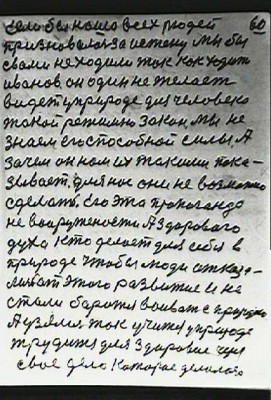 если бы нашо всех людей 60
призновал за истену мы бы
сваими неходили так как ходит
иванов он один не желает
видет у природе для человека
такой режимно закон, мы не
знаем его способной силы, А
зачем он ном их такими пока-
зывает, для нас они не возможно
сделать. Его эта пропоганда
не вооружености А здороваго
духа кто делает для себя в
природе чтобы люди отказа-
ли от этого развитие и не
стали боротся воиват с природой
А узялис так учится у природе
трудится для здоровие
свае дело которае делолос